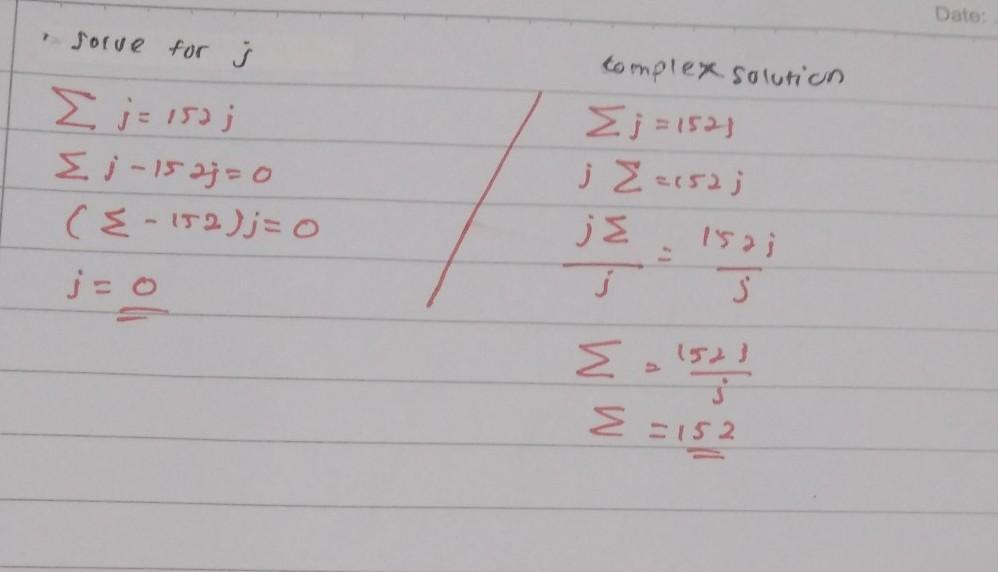 Date:
solve for j
∑ j = 152j
∑ j - 152j = 0
(∑ - 152)j = 0
j = 0
complex solution
∑ j = 152j
j ∑ = 152j
j∑/j = 152j/j
∑ = 152j/j
∑ = 152